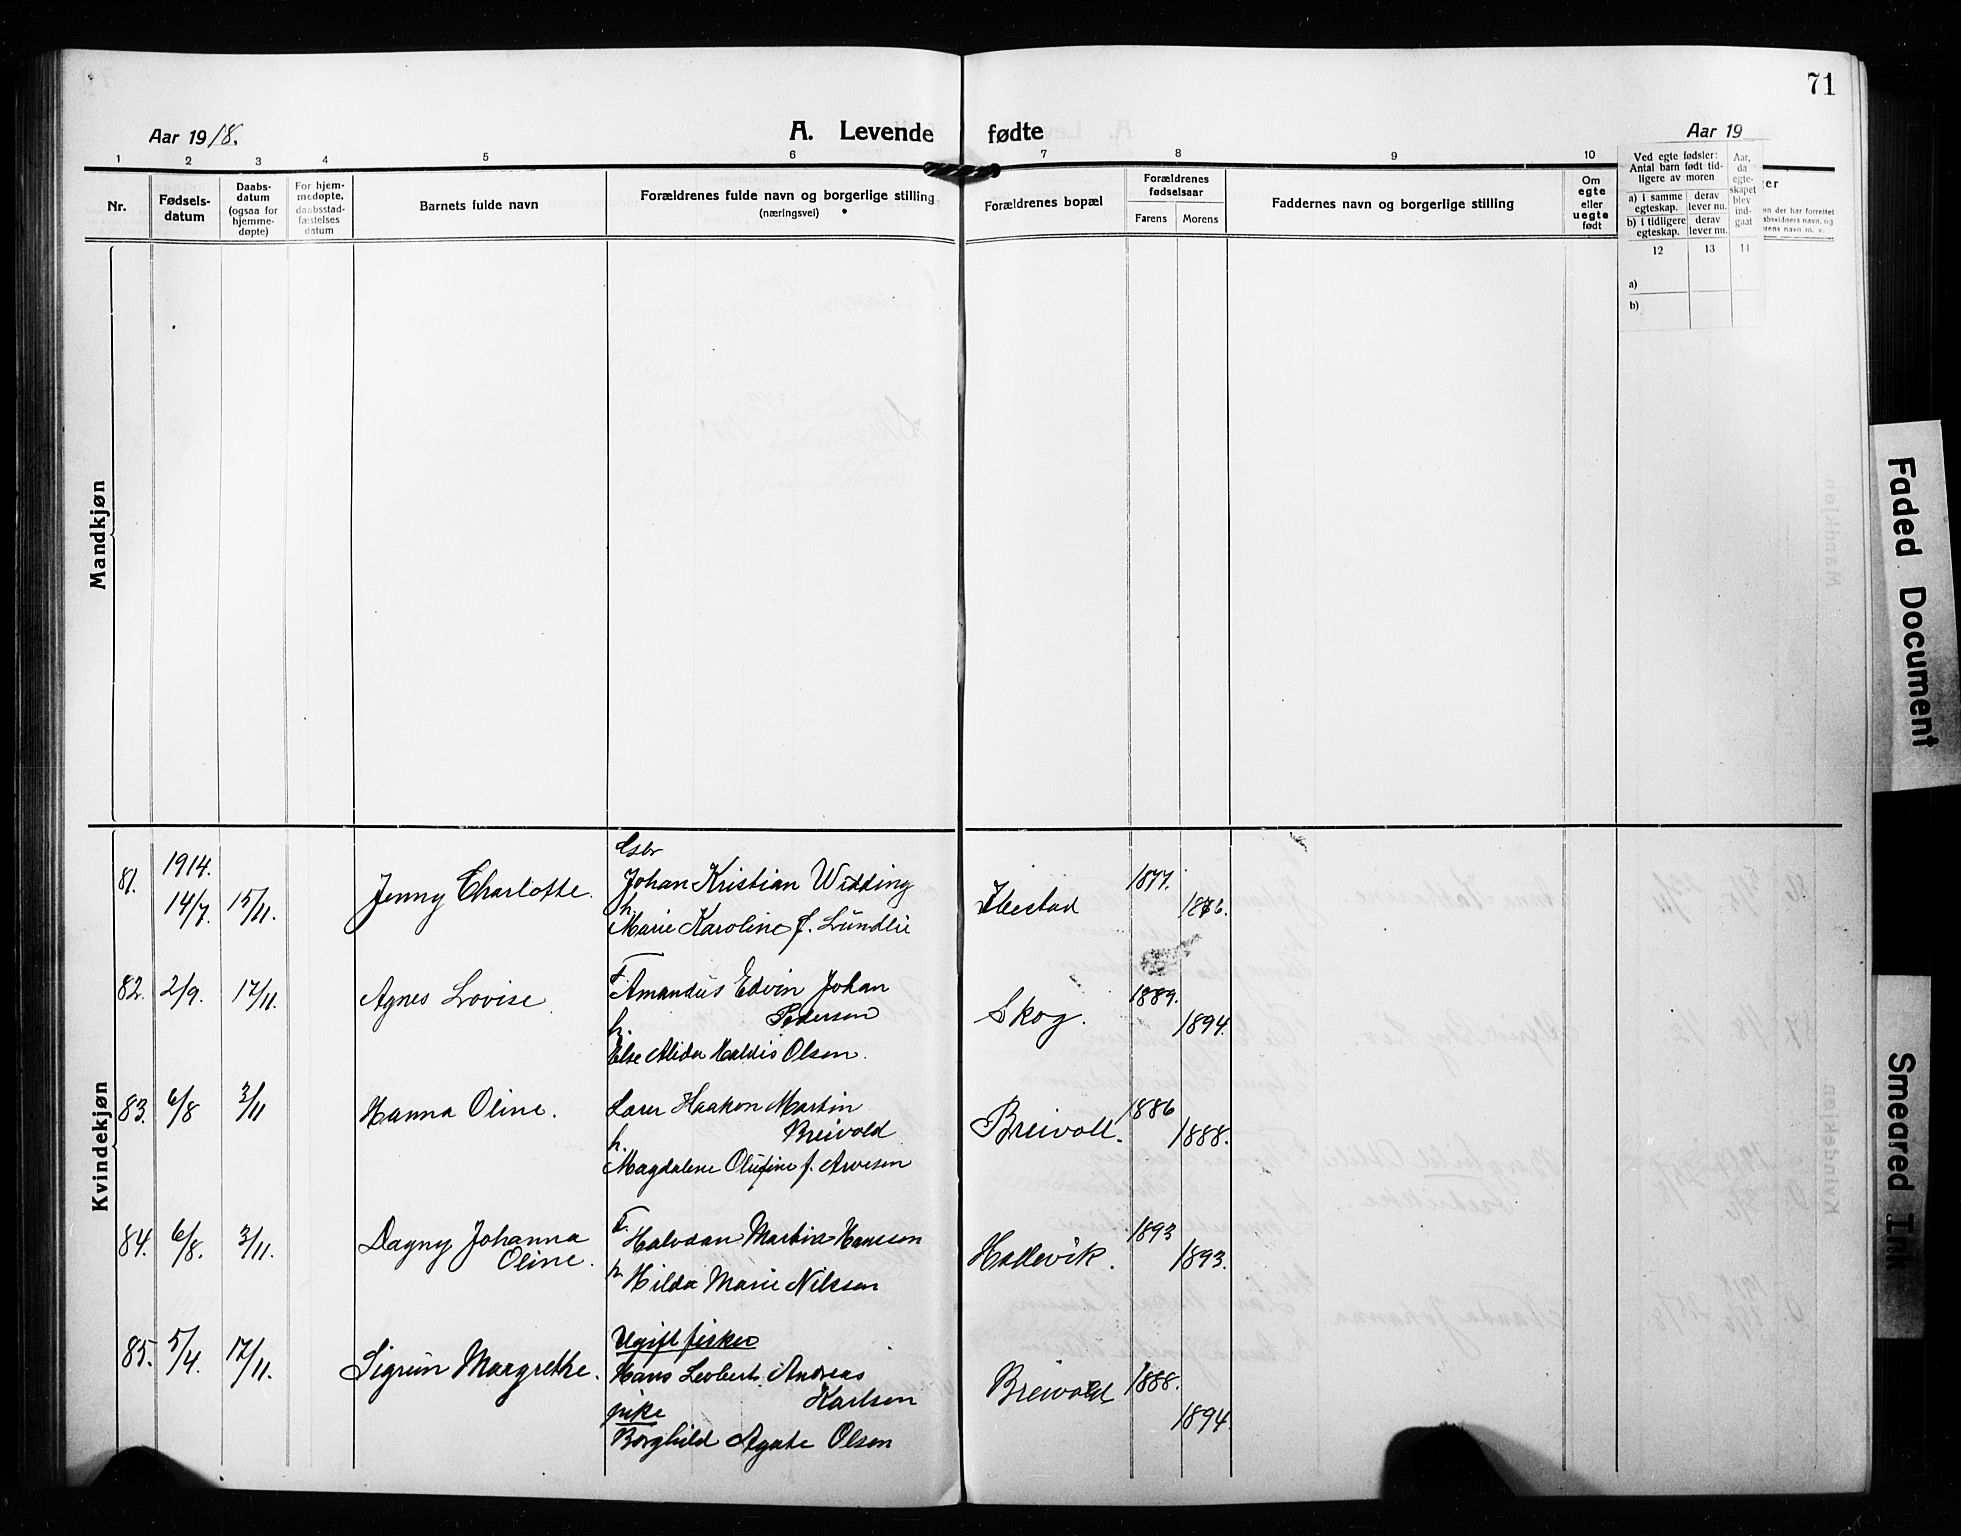 71
Aar 1918.
A. Levende fødte
Aar 19
1 2 3 4 5 6 7 8 9 10
Nr.
Fødsels-
datum
Daabs-
datum
(ogsaa for
hjemme-
døpte)
For hjem-
medøpte,
daabsstad-
fæstelses
datum
Barnets fulde navn
Forældrenes fulde navn og borgerlige stilling
(næringsvei)
Forældrenes bopæl
Forældrenes
fødselsaar
Farens
Morens
Faddernes navn og borgerlige stilling
Om
egte
eller
uegte
født
Ved egte fødsler:
Antal barn født tid-
ligere av moren
a) i samme
egteskap.
derav
lever nu.
b) i tidligere
egteskap.
derav
lever nu.
Aar,
da
egte-
skapet
blev
ind-
gaat
12 13 14
a)
b)
Mandkjøn
Kvindekjøn
81.
1914.
14/7
15/11.
Jenny Charlotte.
Johan Kristian Widding
h.
Marie Karoline f. Lundli
Ibestad
1877.
1876.
82.
2/9.
17/11.
Agnes Lovise
F.
Amandus Edvin Johan
Pedersen
h.
Else Alida Haldis Olsen.
Skog.
1889.
1894.
83.
6/8
3/11
Hanna Oline.
Lærer Haakon Martin
Breivold
h.
Magdalene Olufine f. Arvesen
Breivoll.
1886
1888.
84.
6/8.
3/11.
Dagny Johanna
Oline.
F.
Halvdan Martin Hansson
h
Hilda Marie Nilssen
Hallevik.
1893
1893.
85.
5/4.
17/11.
Sigrun Margrethe.
Ugift fisker
Hans Leobert Andreas
Karlsen
pike
Borghild Agate Olsen
Breivold
1888.
1894
Faded Document
Smeared Ink